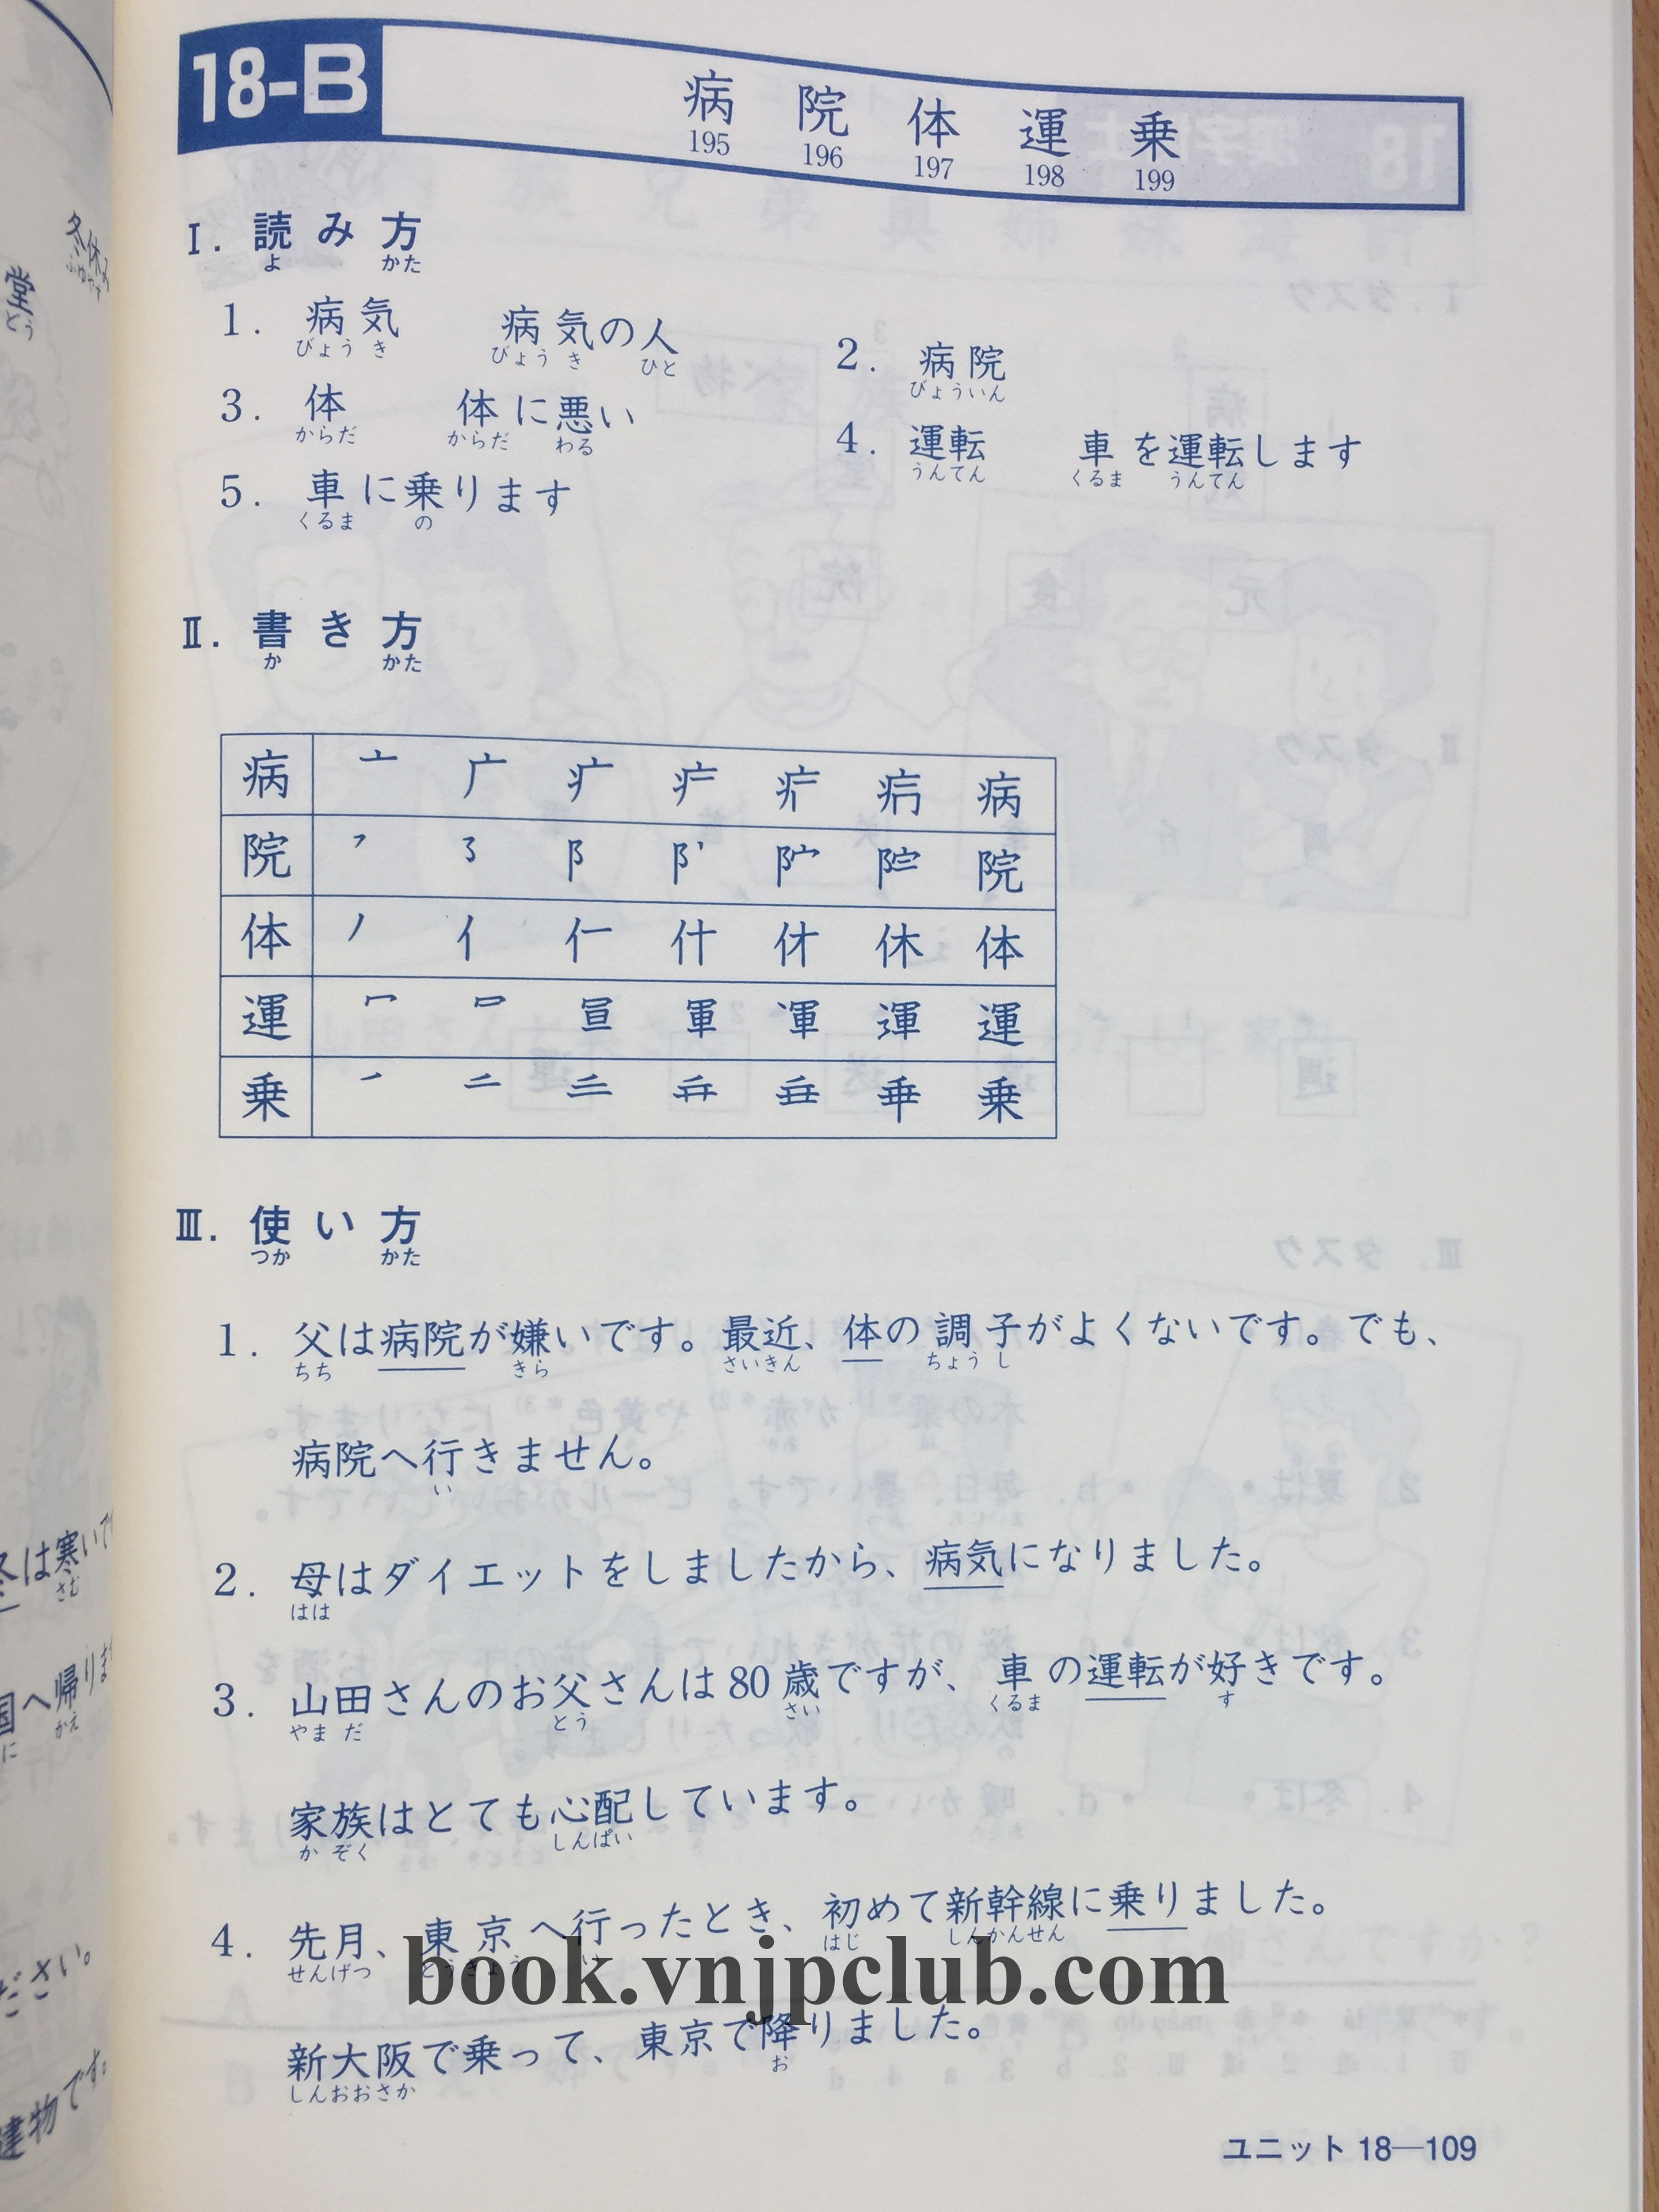 18-B
病 院 体 運 乗
195 196 197 198 199
Ⅰ. 読み方
よ かた
1. 病気 病気の人
びょうき びょうき ひと
2. 病院
びょういん
3. 体 体に悪い
からだ からだ わる
4. 運転 車を運転します
うんてん くるま うんてん
5. 車に乗ります
くるま の
Ⅱ. 書き方
か かた
病 亠 广 疒 病
院 阝 院
体 ノ 亻 仁 什 休 体
運 冖 軍 運
乗 乗
Ⅲ. 使い方
つか かた
1. 父は病院が嫌いです。最近、体の調子がよくないです。でも、
ちち きら さいきん ちょうし
病院へ行きません。
い
2. 母はダイエットをしましたから、病気になりました。
はは
3. 山田さんのお父さんは80歳ですが、車の運転が好きです。
やまだ とう さい くるま す
家族はとても心配しています。
かぞく しんぱい
4. 先月、東京へ行ったとき、初めて新幹線に乗りました。
せんげつ とうきょう い はじ しんかんせん
book.vnjpclub.com
新大阪で乗って、東京で降りました。
しんおおさか お
ユニット 18—109